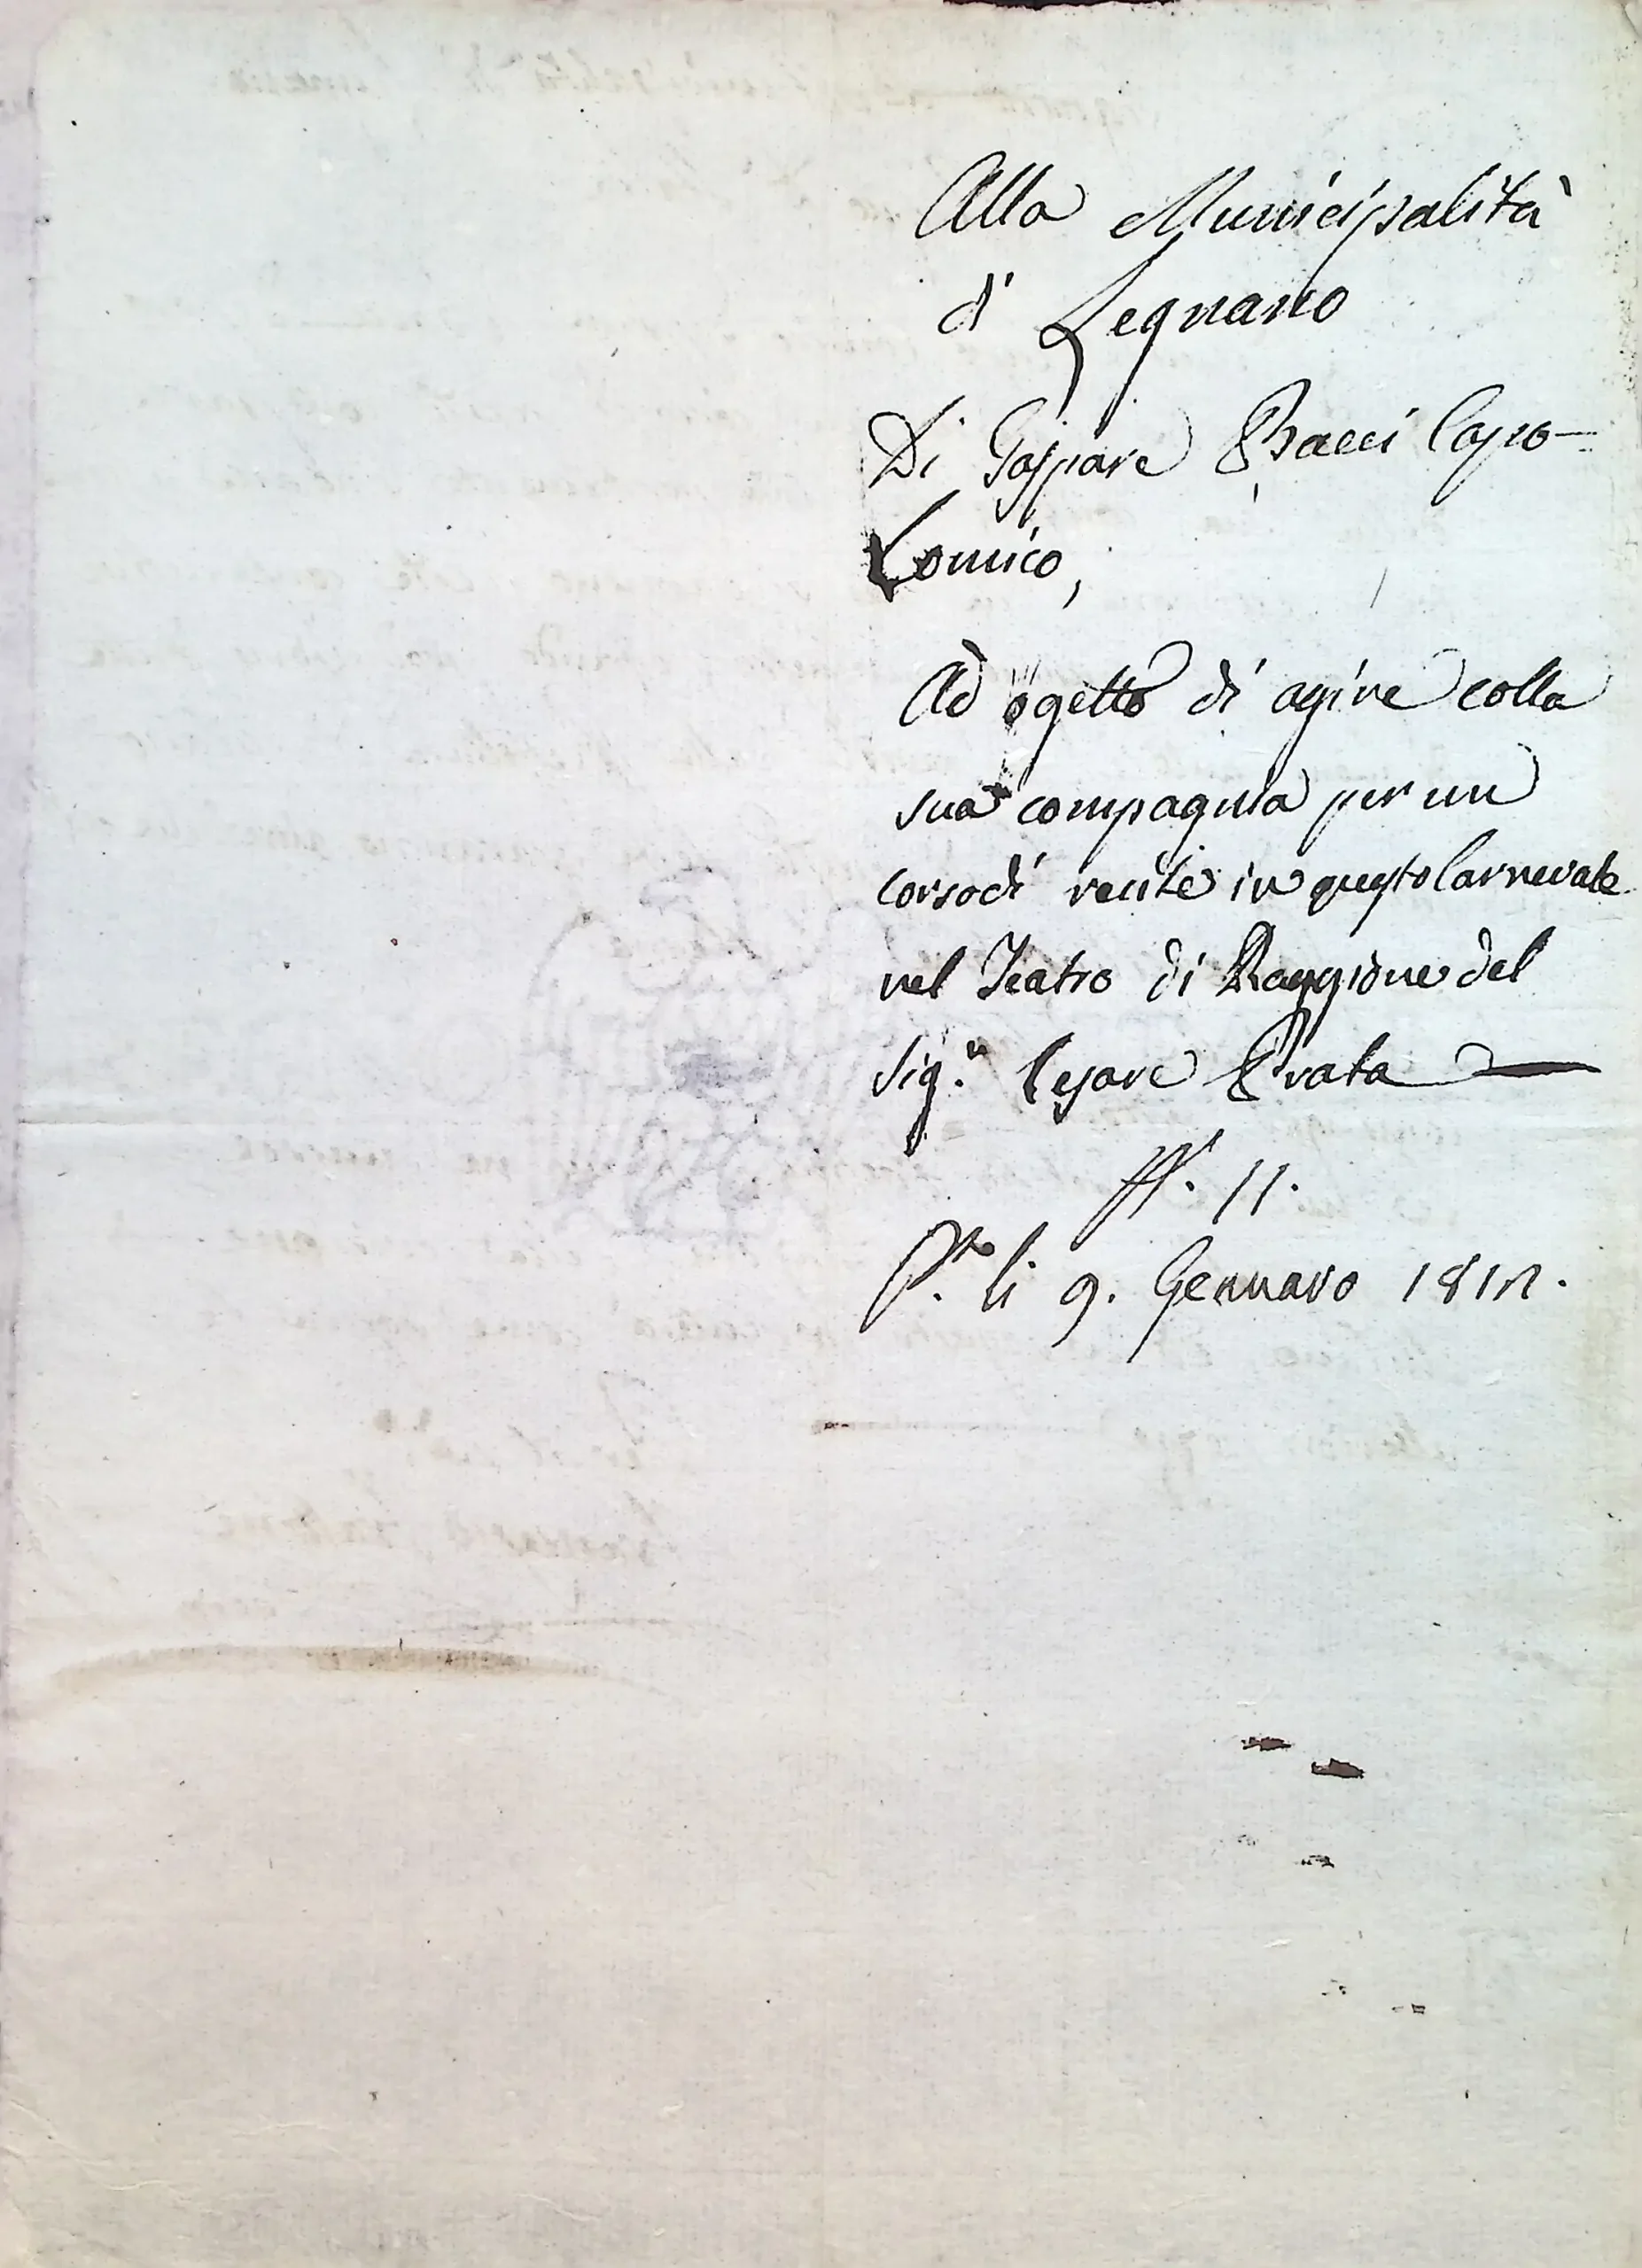 Alla Municipalità
di Legnano
Di Gaspare Bacci Capo-
Comico,
Ad ogetto di agire colla
sua compagnia per un
corso di recite in questo Carnevale
nel Teatro di Raggione del
Sig.r Cesare Prata
N. 11.
P.to li 9. Gennaro 1812.